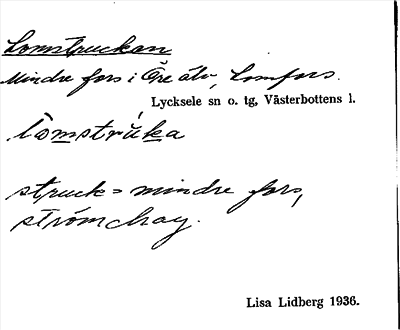 Lomstruckan
Mindre fors i Öre älv, Lomfors.
Lycksele sn o. tg, Västerbottens l.
lòmstrúka
struck = mindre fors,
strömdrag.
Lisa Lidberg 1936.